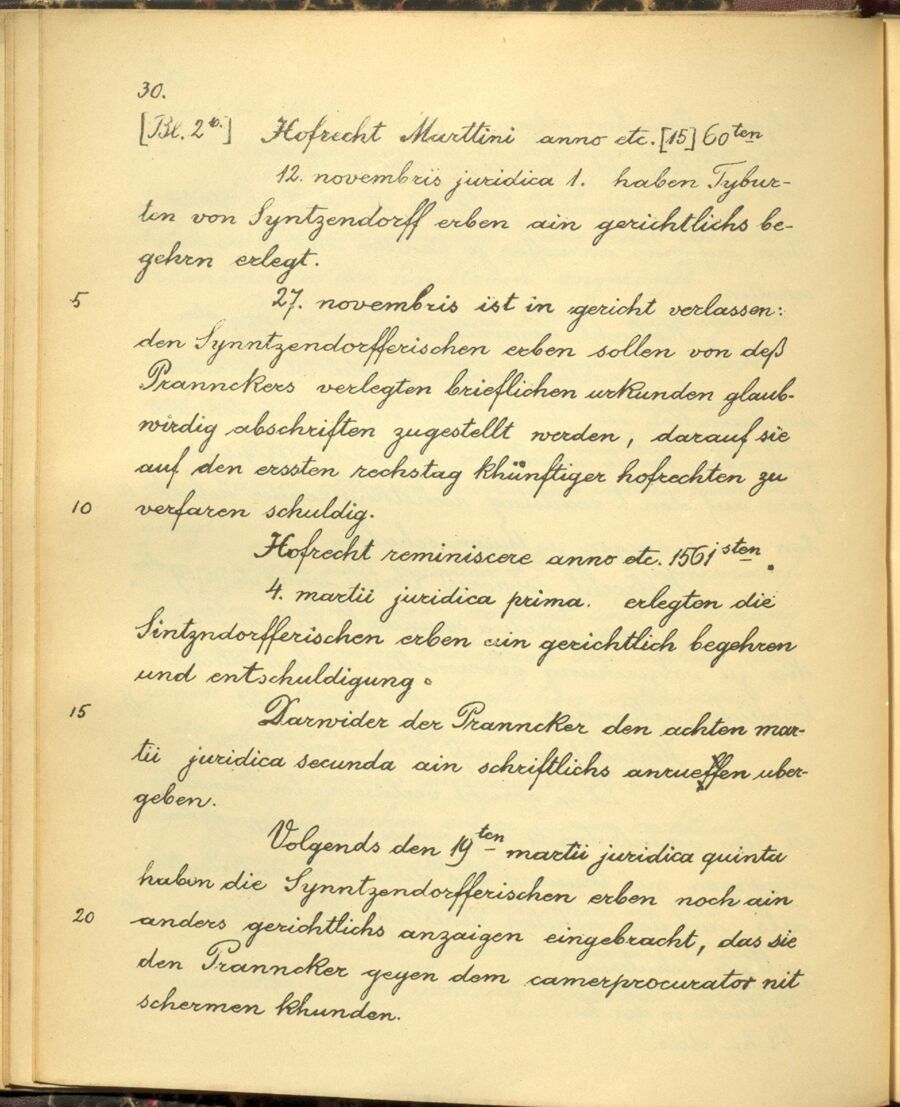 30.
[Bl. 2b.] Hofrecht Marttini anno etc. [15] 60ten
12. novembris juridica 1. haben Tybur-
ten von Syntzendorff erben ain gerichtlichs be-
gehrn erlegt.
5 27. novembris ist in gericht verlassen:
den Synntzendorfferischen erben sollen von deß
Prannckers verlegten brieflichen urkunden glaub-
wirdig abschriften zugestellt werden, darauf sie
auf den erssten rechstag khünftiger hofrechten zu
10 verfaren schuldig.
Hofrecht reminiscere anno etc. 1561sten.
4. martii juridica prima. erlegten die
Sintzndorfferischen erben ain gerichtlich begehren
und entschuldigung.
15 Darwider der Pranncker den achten mar-
tii juridica secunda ain schriftlichs anrueffen uber-
geben.
Volgends den 19ten martii juridica quinta
haben die Synntzendorfferischen erben noch ain
20 anders gerichtlichs anzaigen eingebracht, das sie
den Pranncker gegen dem camerprocurator nit
schermen khunden.